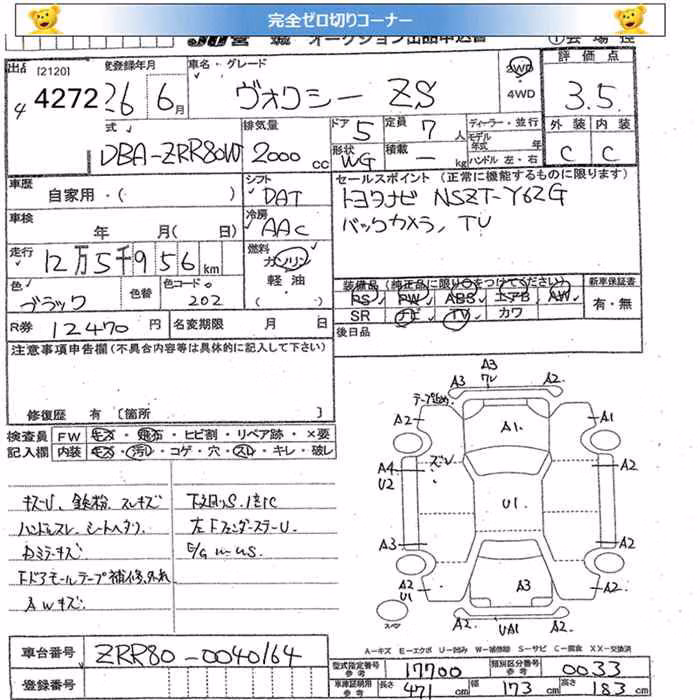 完全ゼロ切りコーナー
[2120]
4
4272
登録年月
26 6月
車名・グレード
ヴォクシー ZS
2WD
4WD
評価点
3.5
外装 内装
C C
DBA-ZRR80W
排気量
2000 cc
ドア 5
定員 7人
ディーラー・並行
モデル年式 年
ハンドル 左・右
形状 WG
積載 — kg
車歴
自家用・( )
シフト
DAT
冷房
AAC
セールスポイント (正常に機能するものに限ります)
トヨタナビ NSZT-Y62G
バックカメラ, TV
車検
年 月( 日)
走行
12万5千956km
燃料
ガソリン
軽油
色
ブラック
色替
色コード
202
装備品 (純正品に限り○をつけてください)
PS PW ABS エアB AW
SR ナビ TV カワ
新車保証書
有・無
R券 12470円
名変期限 月 日
後日品
注意事項申告欄 (不具合内容等は具体的に記入して下さい)
修復歴 有 〔箇所 〕
検査員 FW キズ・飛石・ヒビ割・リペア跡・×要
記入欄 内装 キズ・汚レ・コゲ・穴・スレ・キレ・破レ
キズU、鉄粉、スレキズ
ハンドルスレ、シートヘタリ
Dミラーキズ
FドアモールテープМ補修、外れ
AWキズ
下廻りS、1部C
左Fフェンダーステー U
A3
A3 ワレ A2
A2 A1
A1
A4
U2
ズレ
A2
U1
A3
A2
A2
U1
A3
A2
A2 A2
UA1
スペア
A-キズ E-エクボ U-凹み W-補修跡 S-サビ C-腐食 XX-交換済
車台番号 ZRR80-0040164
登録番号
型式指定番号 参考 17700
類別区分番号 参考 0033
車庫証明用 参考 長さ 471 cm 幅 173 cm 高さ 183 cm